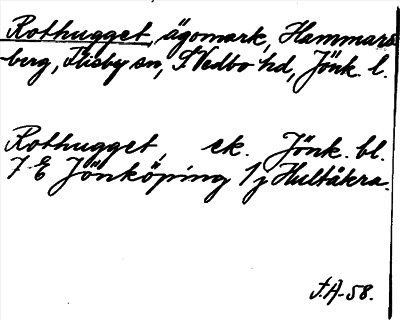 Rothugget, ägomark, Hammars-
berg, Flisby sn, S. Vedbo hd, Jönk. l.
Rothugget, ek. Jönk. bl.
7 E Jönköping 1 j Hultåkra.
J.A-58.